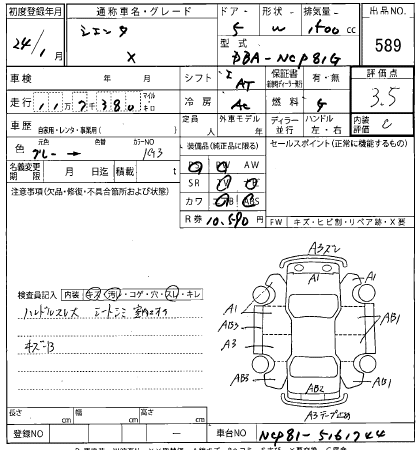 初度登録年月 通称車名・グレード ドア・ 形状・ 排気量・ 出品NO.
24/1月 シエンタ X 5 W 1500 cc 589
型式 DBA-NCP81G
車検 年 月 シフト I AT 保証書 有・無 評価点
走行 117千380 マイル キロ 冷房 AC 燃料 G 3.5
車歴 自家用・レンタ・事業用( ) 定員 外車モデル 人 年 ディーラー 並行 ハンドル 左・右 内装評価 C
色 グレー → 色替 カラーNO 1C93
装備品(純正品に限る) セールスポイント(正常に機能するもの)
名義変更期限 月 日迄 積載 t
PS PW AW
SR ナビ TV
カワ エアB ABS
R券 10,590 円
注意事項(欠品・修復・不具合箇所および状態)
FW キズ・ヒビ割・リペア跡・X要
検査員記入 内装 キズ・汚レ・コゲ・穴・スレ・キレ
ハンドルスレ大 シートシミ 室内ヨゴレ
キズ-B
A3スソ
A1 A1
A1
AB3 AB1
A3
AB3 AB2 AB1
A3テープ止め
長さ cm 幅 cm 高さ cm
登録NO — 車台NO NCP81-5161744